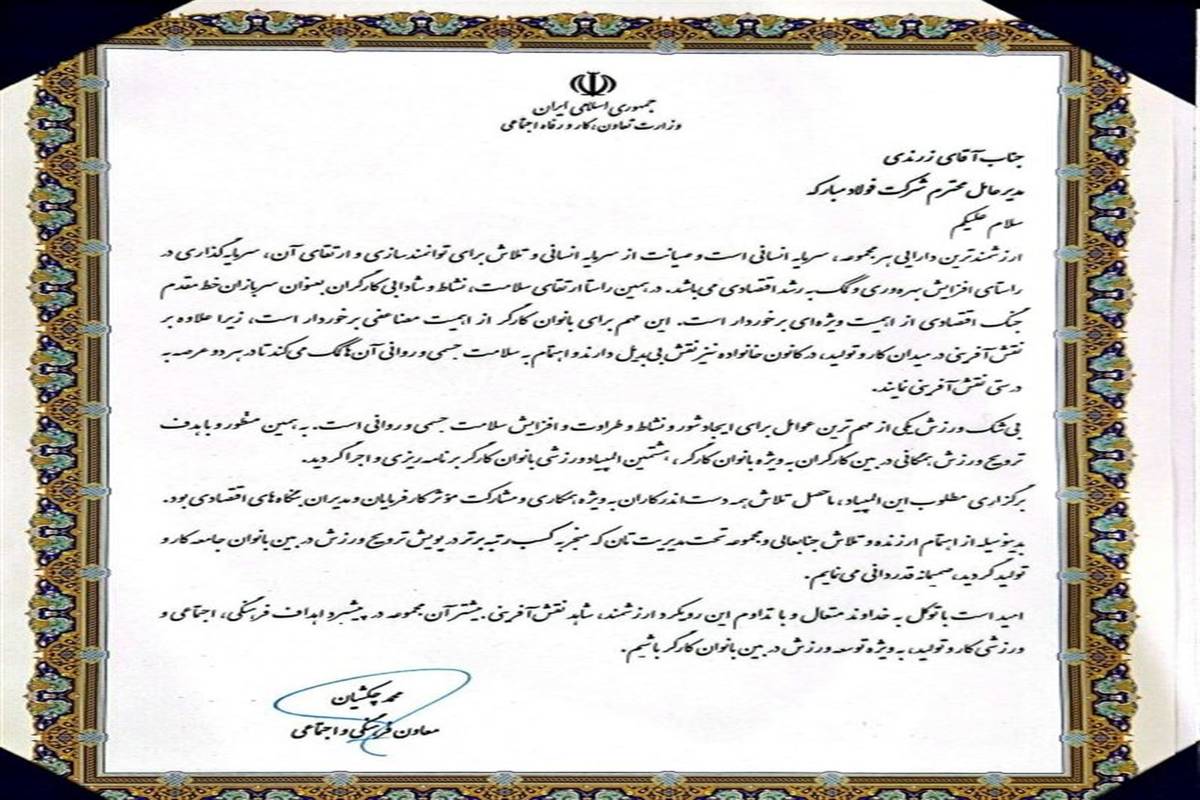 جمهوری اسلامی ایران
وزارت تعاون، کار و رفاه اجتماعی
جناب آقای زرندی
مدیرعامل محترم شرکت فولاد مبارکه
سلام علیکم
ارزشمندترین دارایی هر مجموعه، سرمایه انسانی است و صیانت از سرمایه انسانی و تلاش برای توانمندسازی و ارتقای آن، سرمایه‌گذاری در
راستای افزایش بهره‌وری و کمک به رشد اقتصادی می‌باشد. در همین راستا ارتقای سلامت، نشاط و شادابی کارگران بعنوان سربازان خط مقدم
جنگ اقتصادی از اهمیت ویژه‌ای برخوردار است. این مهم برای بانوان کارگر از اهمیت مضاعفی برخوردار است، زیرا علاوه بر
نقش آفرینی در میدان کار و تولید، در کانون خانواده نیز نقش بی‌بدیل دارند و اهتمام به سلامت جسمی و روانی آن‌ها کمک می‌کند تا در هر دو عرصه به
درستی نقش آفرینی نمایند.
بی‌شک ورزش یکی از مهم‌ترین عوامل برای ایجاد شور و نشاط و طراوت و افزایش سلامت جسمی و روانی است. به همین منظور و با هدف
ترویج ورزش همگانی در بین کارگران به ویژه بانوان کارگر، هشتمین المپیاد ورزشی بانوان کارگر برنامه ریزی و اجرا گردید.
برگزاری مطلوب این المپیاد، ماحصل تلاش همه دست‌اندرکاران به ویژه همکاری و مشارکت مؤثر کارفرمایان و مدیران بنگاه‌های اقتصادی بود.
بدینوسیله از اهتمام ارزنده و تلاش جنابعالی و مجموعه تحت مدیریت‌تان که منجر به کسب رتبه برتر در پویش ترویج ورزش در بین بانوان جامعه کار و
تولید گردید، صمیمانه قدردانی می‌نمایم.
امید است با توکل به خداوند متعال و با تداوم این رویکرد ارزشمند، شاهد نقش آفرینی بیشتر آن مجموعه در پیشبرد اهداف فرهنگی، اجتماعی و
ورزشی کار و تولید، به ویژه توسعه ورزش در بین بانوان کارگر باشیم.
محمد چکشیان
معاون فرهنگی و اجتماعی